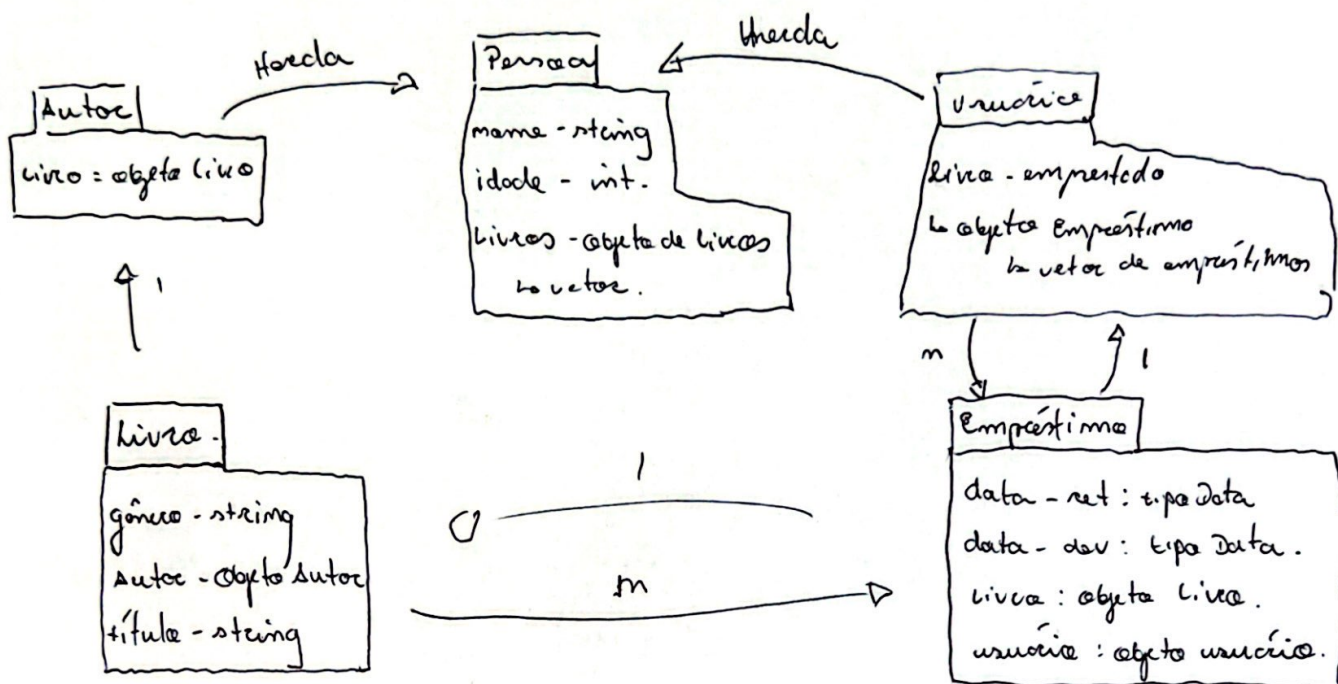 Herda
Herda
Autor
livro = objeto livro
Pessoa
nome - string
idade - int.
Livros - objeto de livros
↳ vetor.
Usuário
livro - emprestado
↳ objeto Empréstimo
↳ vetor de empréstimos
1
n
1
Livro.
gênero - string
Autor - Objeto Autor
título - string
1
m
Empréstimo
data - ret : tipo Data
data - dev : tipo Data.
livro : objeto livro.
usuário : objeto usuário.